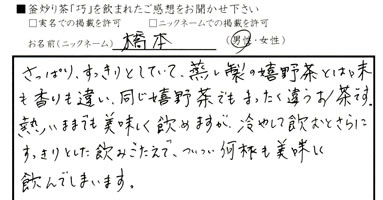 ■釜炒り茶「巧」を飲まれたご感想をお聞かせ下さい
□実名での掲載を許可 □ニックネームでの掲載を許可
お名前(ニックネーム) 橋本 (男性・女性)
さっぱり、すっきりとしていて、蒸し製の嬉野茶とは味
も香りも違い、同じ嬉野茶でもまったく違うお茶です。
熱いままでも美味しく飲めますが、冷やして飲むとさらに
すっきりとした飲みごたえで、ついつい何杯も美味しく
飲んでしまいます。